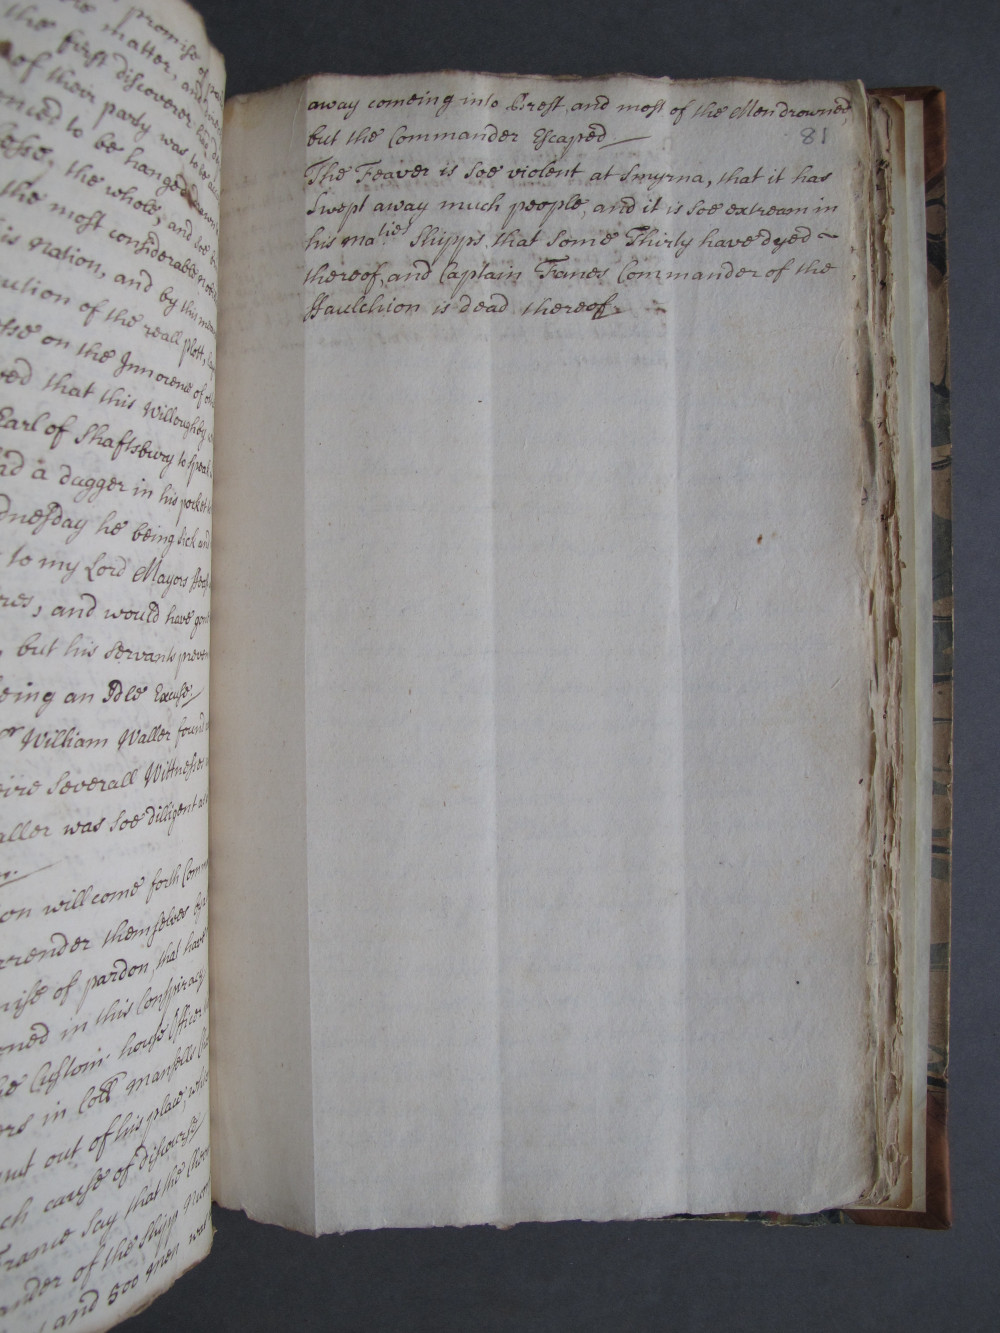 promise of
the matter, and
the first discoverer
of their party was to be
to be hanged
the whole, and soe
the most considerable
is nation, and by this
ution of the reall plott,
on the Innocence of
ved that this Willoughby
Earl of Shaftsbury to speak
ad a dagger in his pocket
dnesday he being sick and
to my Lord Mayors
, and would have gon
, but his servants preven
being an Idle Excuse
or William Waller found
severall Wittnesses
aller was soe dilligent as
ion will come forth Comm
rrender themselves
mise of pardon, that have
rned in this Conspiracy
he Custom house Officer
rs in Coll Mansells
put out of his place, which
ch cause of discourse
France say that the
ander of the Shipp
, and 500 men was
81
away comeing into Brest, and most of the Men drowned,
but the Commander Escaped
The Feaver is soe violent at Smyrna, that it has
Swept away much people, and it is soe extream in
his maties Shipps, that some Thirty have dyed
thereof, and Captain James Commander of the
Haulchion is dead thereof